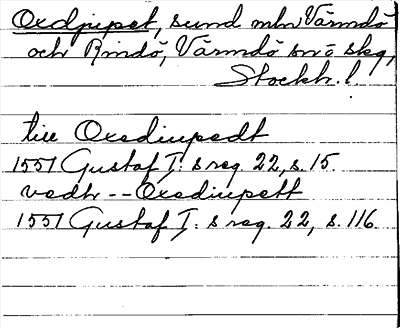 Oxdjupet, sund mln Värmdö
och Rindö, Värmdö snö skg,
Stockh. l.
till Oxediupedt
1551 Gustaf I: s reg. 22, s. 15.
vedh -- Oxediupett
1551 Gustaf I: s reg. 22, s. 116.